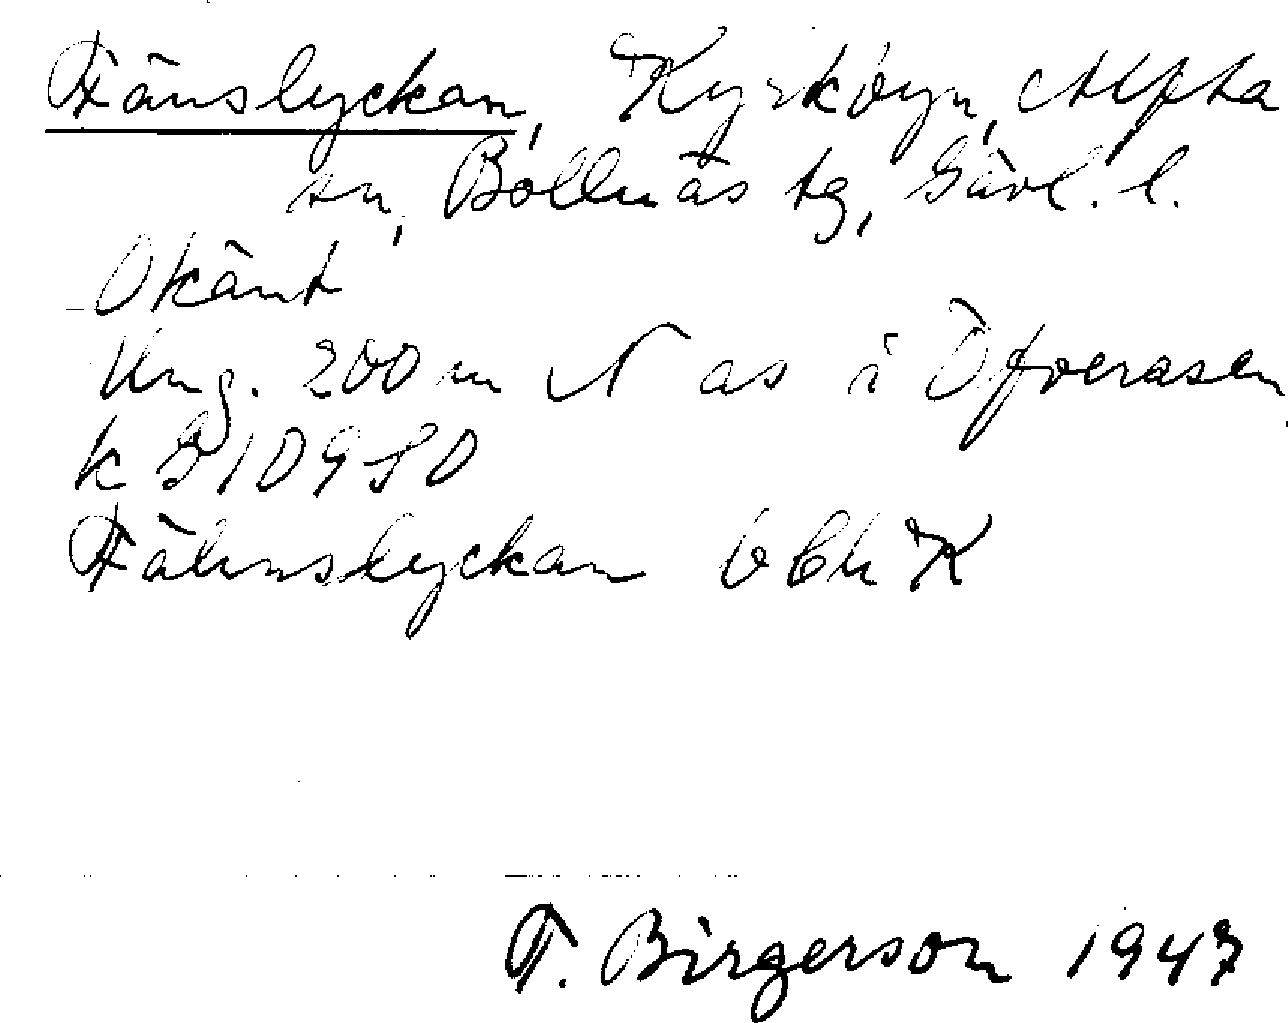 Fänslyckan, Kyrkbyn, Alfta
sn, Bollnäs tg, Gävl. l.
Okänt
Ung. 200 m N as i Öfverasen
k 310980
Fähnslyckan K
F. Birgerson 1947